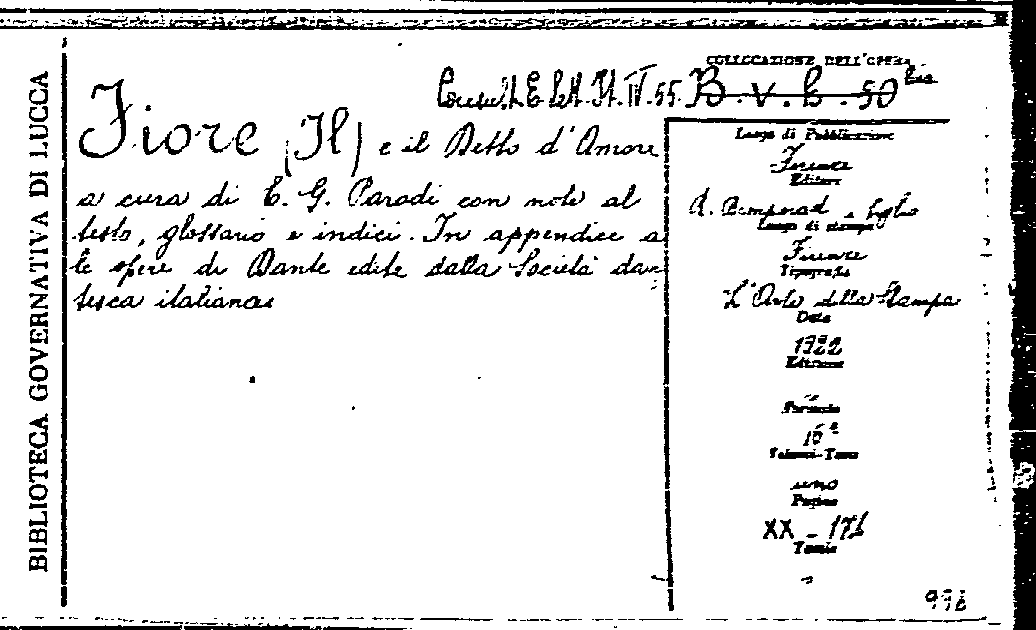 BIBLIOTECA GOVERNATIVA DI LUCCA
COLLOCAZIONE DELL'OPERA
Consult. E. Lett. It. IV. 55. B. V. E. 50 bis
Fiore (Il) e il Detto d'Amore
a cura di E. G. Parodi con note al
testo, glossario e indici. In appendice a
le opere di Dante edite dalla Società dan
tesca italiana
Luogo di Pubblicazione
Firenze
Editore
R. Bemporad e figlio
Luogo di stampa
Firenze
Tipografia
L'Arte della Stampa
Data
1922
Edizione
Formato
16°
Volumi-Tomi
uno
Pagine
XX - 17
Tavole